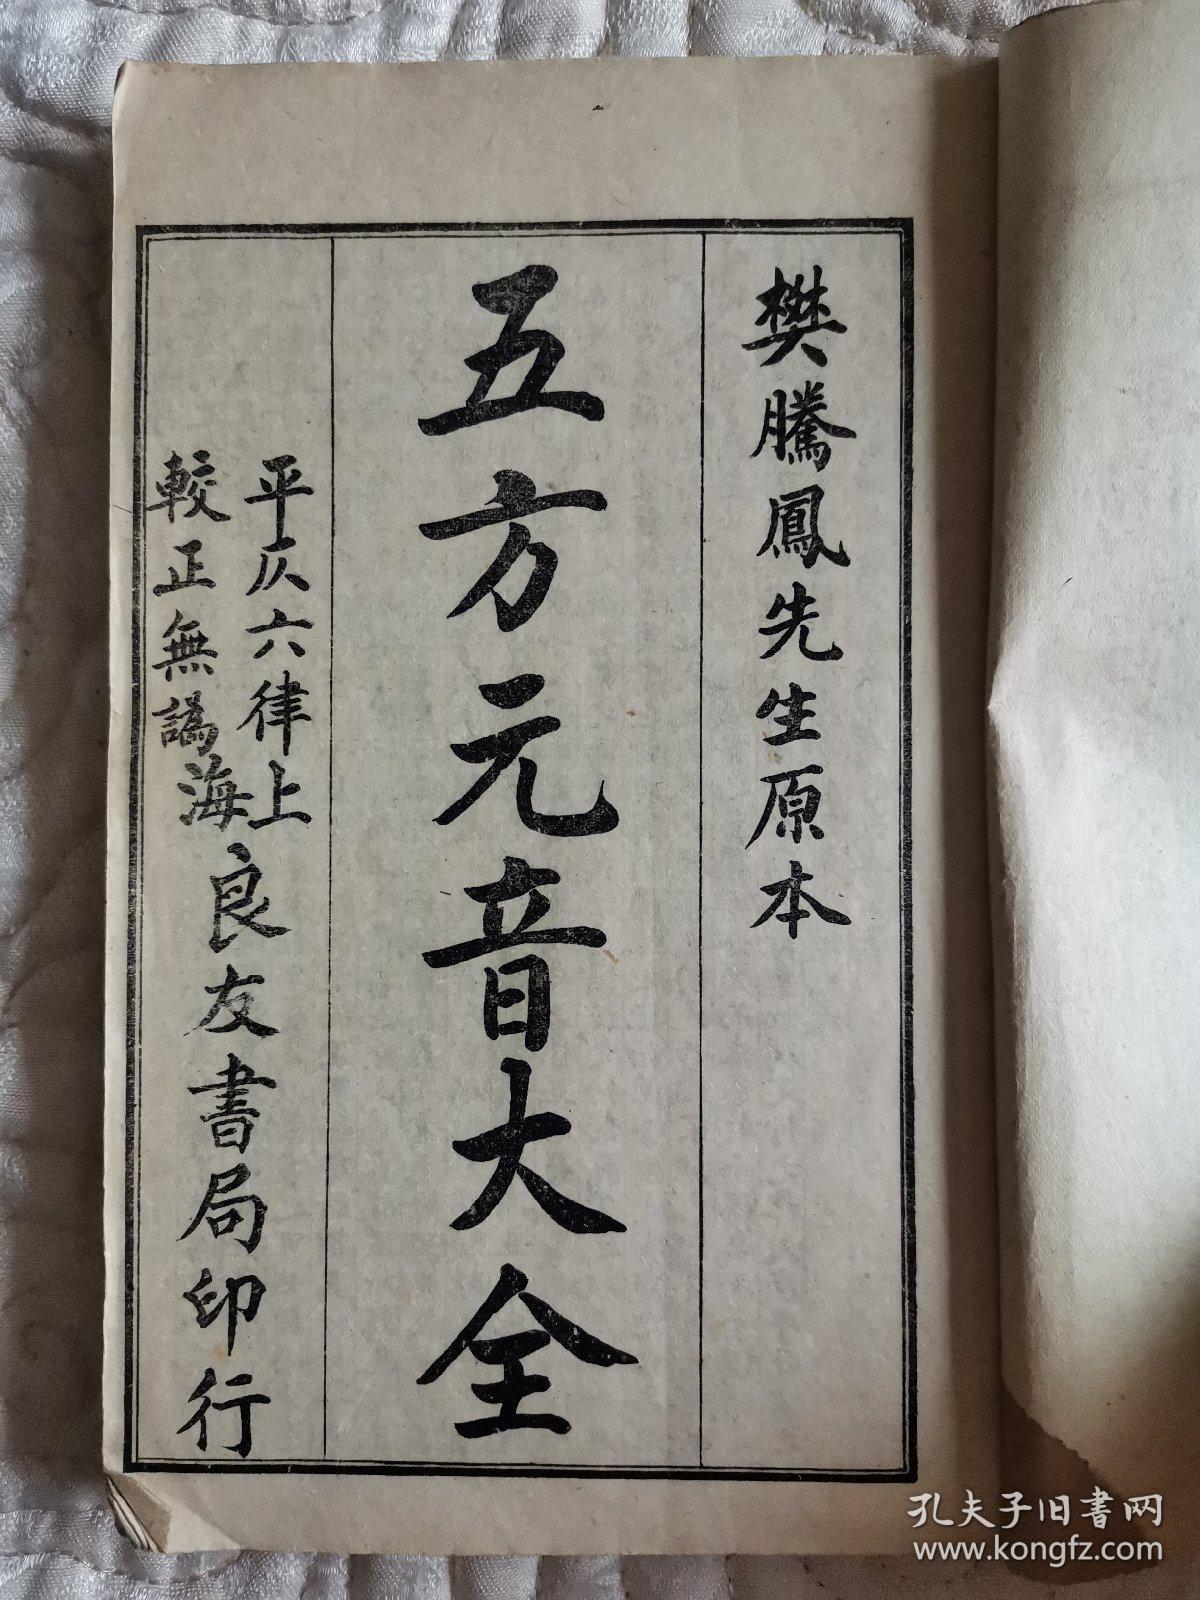 樊騰鳳先生原本
五方元音大全
平仄六律
較正無譌
上海良友書局印行
孔夫子旧書网
www.kongfz.com